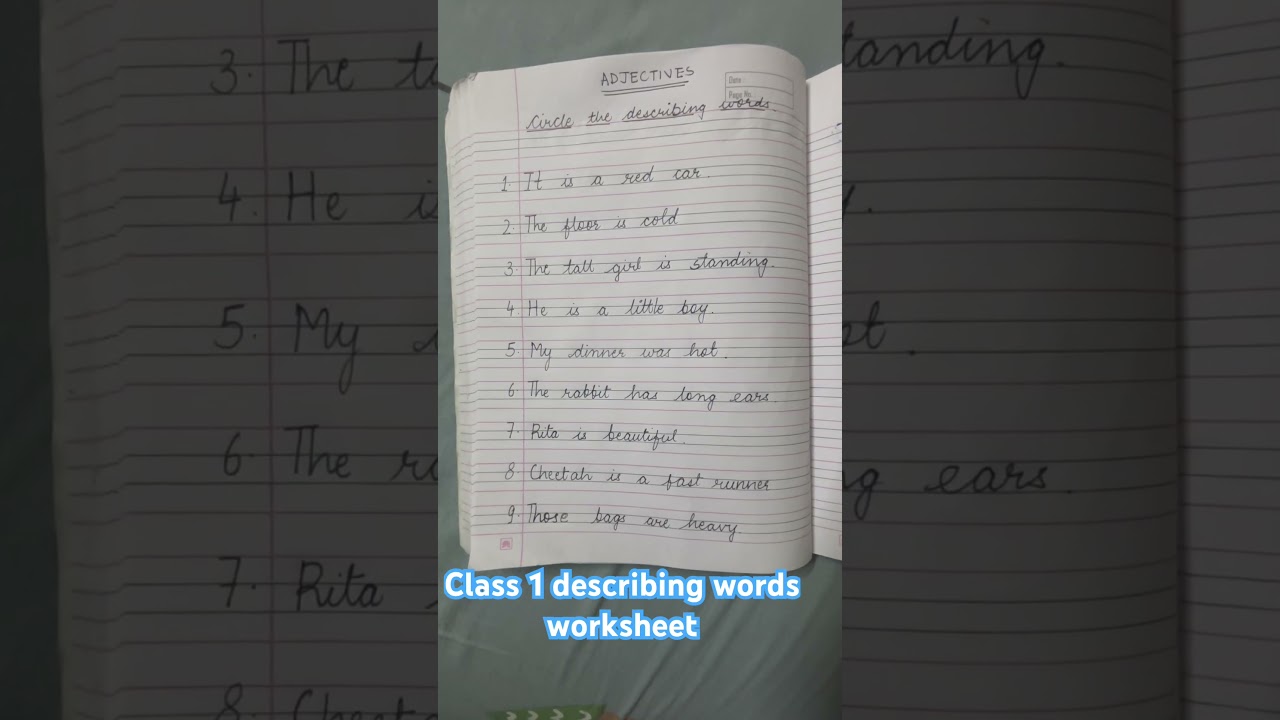 ADJECTIVES
Date :
Page No.
Circle the describing words.
1. It is a red car.
2. The floor is cold
3. The tall girl is standing.
4. He is a little boy.
5. My dinner was hot.
6. The rabbit has long ears.
7. Rita is beautiful.
8. Cheetah is a fast runner
9. Those bags are heavy.
Class 1 describing words
worksheet
3. The ta
4. He is
5. My d
6. The ra
7. Rita
8. Cheeta
tanding.
y.
ot.
ng ears.